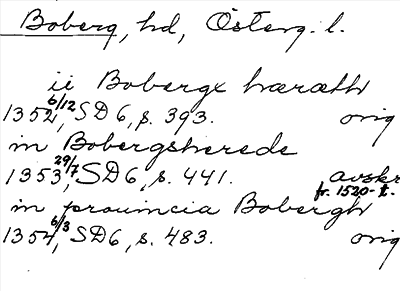 Boberg, hd, Österg. l.
ii Bobergx hæræth
1352 6/12, SD 6, s. 393. orig
in Bobergsherede
1353 29/7, SD 6, s. 441. avskr fr. 1520-t.
in prouincia Bobergh
1354 6/3, SD 6, s. 483. orig